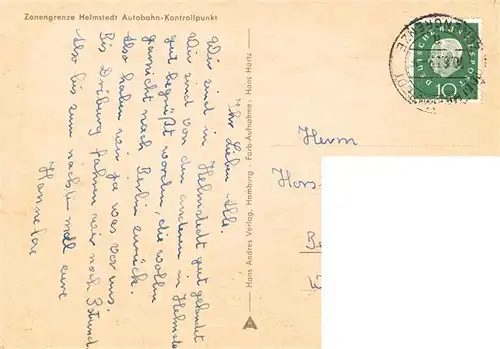 Zonengrenze Helmstedt Autobahn-Kontrollpunkt
Ihr Lieben Alle.
Wir sind in Helmstedt gut gelandet
Wir sind von den anderen in Helmste
gut begrüßt worden, die wollen
garnicht nach Berlin zurück.
Also haben wir ja was vor uns.
Bis Driburg fahren wir noch 3 Stund
Also bis zum nächsten mal eure
Hannelore
Hans Andres Verlag, Hamburg - Farb-Aufnahme: Hans Hartz
DEUTSCHE BUNDESPOST
10
Herrn
Hors